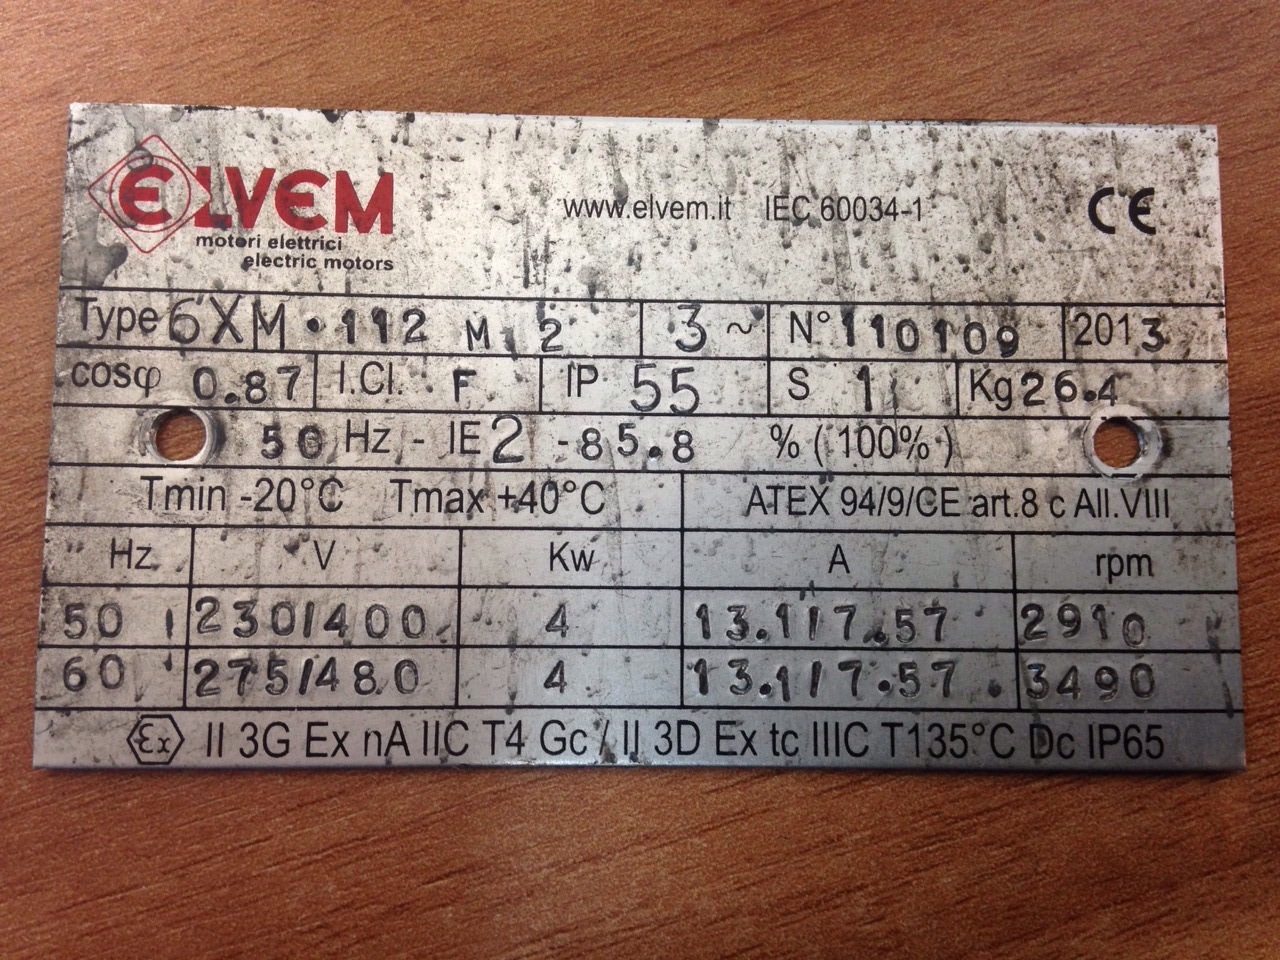 ELVEM
motori elettrici
electric motors
www.elvem.it IEC 60034-1 CE
Type 6XM·112 M 2 3~ N° 110109 2013
cosφ 0.87 I.Cl. F IP 55 S 1 Kg 26.4
50 Hz - IE2 -85.8 % (100%)
Tmin -20°C Tmax +40°C ATEX 94/9/CE art.8 c All.VIII
Hz V Kw A rpm
50 230/400 4 13.1/7.57 2910
60 275/480 4 13.1/7.57 3490
Ex II 3G Ex nA IIC T4 Gc / II 3D Ex tc IIIC T135°C Dc IP65